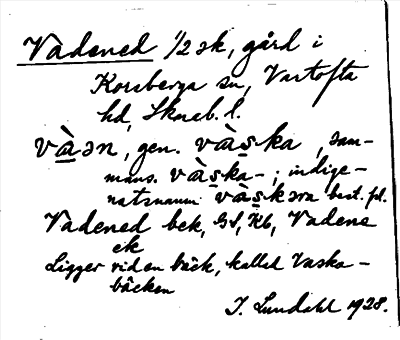 Vadened 1/2 ək, gård i
Korsberga sn, Vartofta
hd, Skarab. l.
và̱ən, gen. vàs̱ka, sam-
mans. vàs̱ka-; indige-
natsnamn vàs̱kəra best. pl.
Vadened bek, GS, Kb, Vadene
ek
Ligger vid en bäck, kallad Vaska-
bäcken
I. Lundahl 1928.